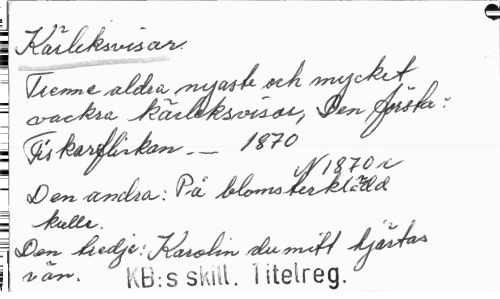 Kärleksvisor.
Trenne aldra nyaste och mycket
vackra kärleksvisor, Den första:
Fiskareflickan. — 1870
N 1870
Den andra: På blomsterklädd
kulle.
Den tredje: Karolin du mitt hjärtas
vän. KB:s skill. Titelreg.